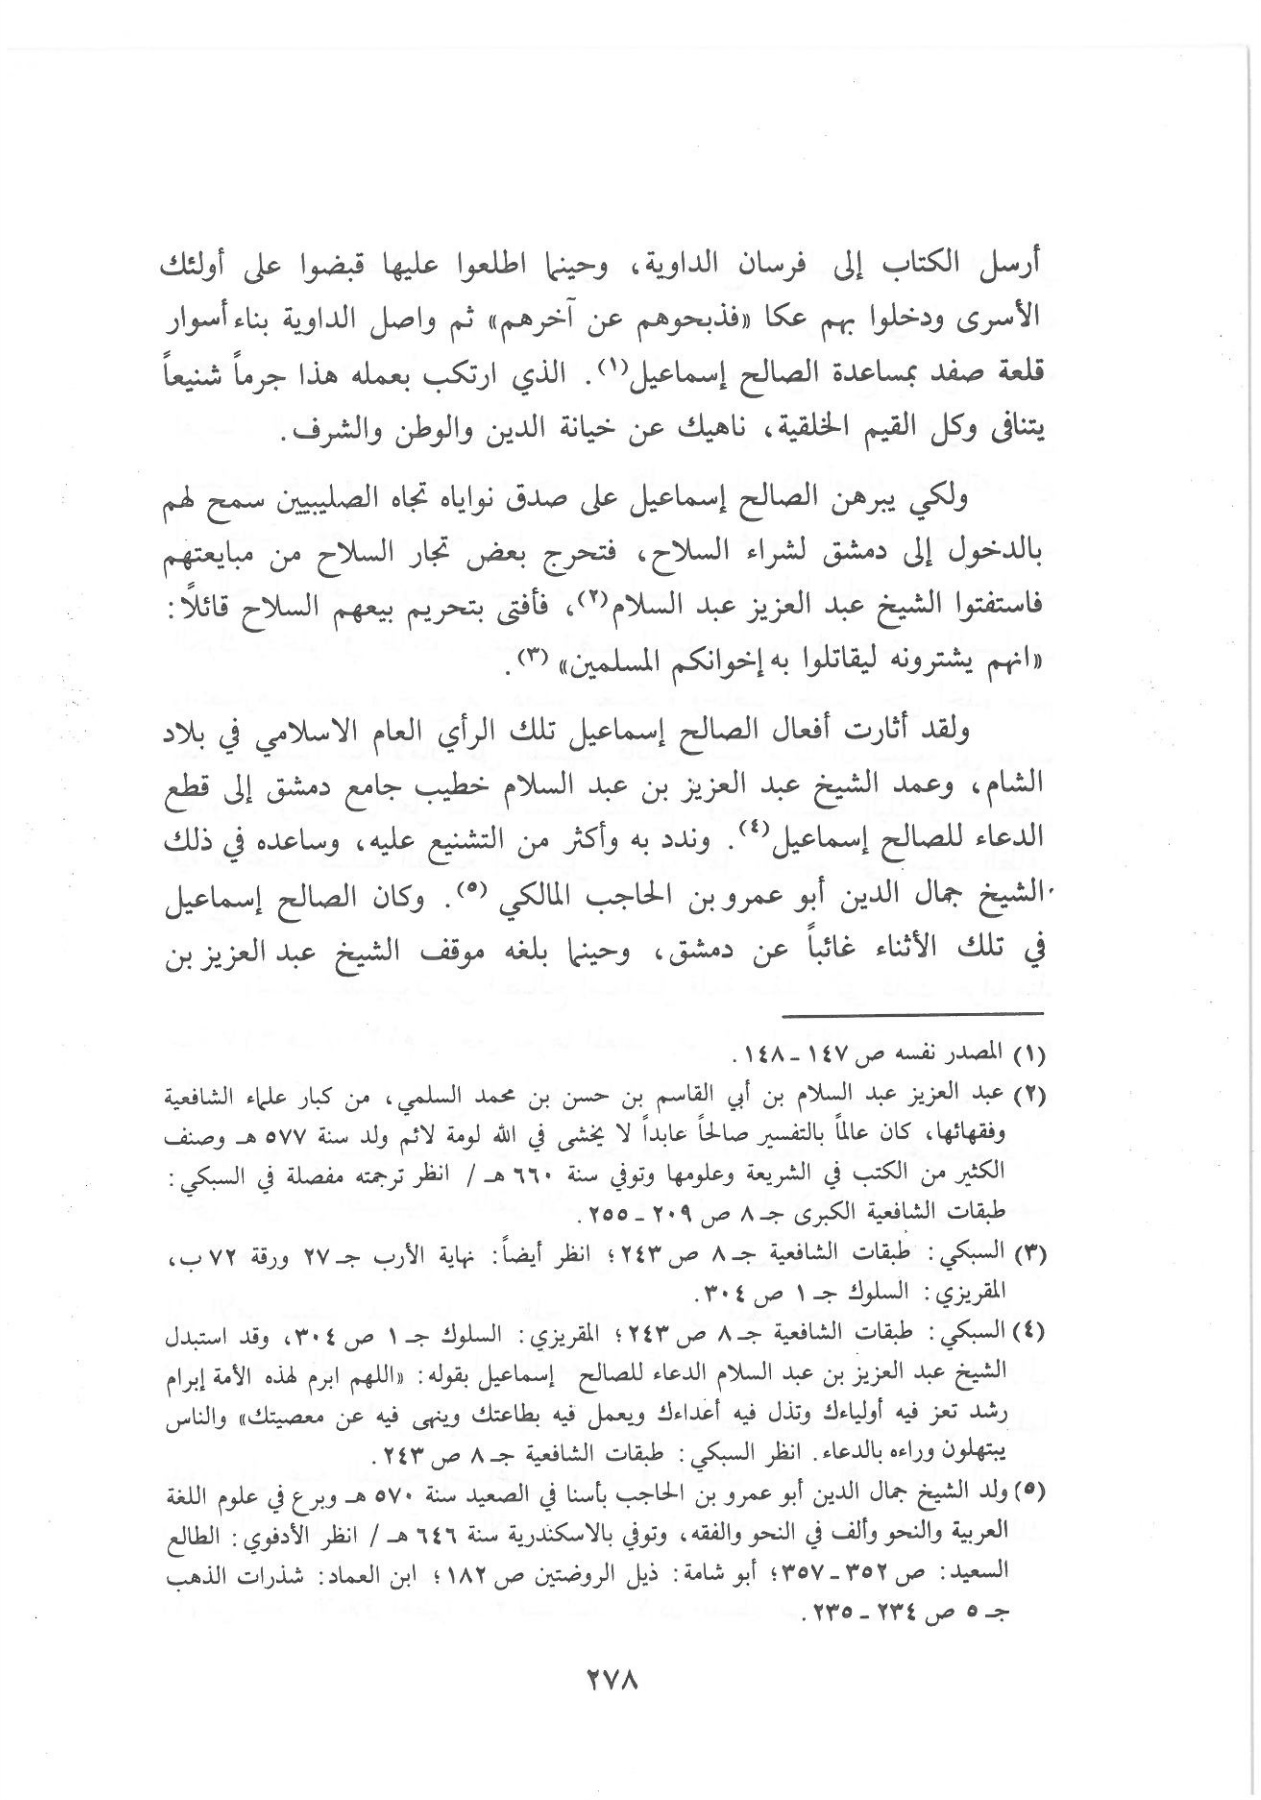 أرسل الكتاب إلى فرسان الداوية، وحينما اطلعوا عليها قبضوا على أولئك
الأسرى ودخلوا بهم عكا «فذبحوهم عن آخرهم» ثم واصل الداوية بناء أسوار
قلعة صفد بمساعدة الصالح إسماعيل(١). الذي ارتكب بعمله هذا جرماً شنيعاً
يتنافى وكل القيم الخلقية، ناهيك عن خيانة الدين والوطن والشرف.
ولكي يبرهن الصالح إسماعيل على صدق نواياه تجاه الصليبيين سمح لهم
بالدخول إلى دمشق لشراء السلاح، فتحرج بعض تجار السلاح من مبايعتهم
فاستفتوا الشيخ عبد العزيز عبد السلام(٢)، فأفتى بتحريم بيعهم السلاح قائلاً:
«انهم يشترونه ليقاتلوا به إخوانكم المسلمين» (٣).
ولقد أثارت أفعال الصالح إسماعيل تلك الرأي العام الاسلامي في بلاد
الشام، وعمد الشيخ عبد العزيز بن عبد السلام خطيب جامع دمشق إلى قطع
الدعاء للصالح إسماعيل(٤). وندد به وأكثر من التشنيع عليه، وساعده في ذلك
الشيخ جمال الدين أبو عمرو بن الحاجب المالكي (٥). وكان الصالح إسماعيل
في تلك الأثناء غائباً عن دمشق، وحينما بلغه موقف الشيخ عبد العزيز بن
(١) المصدر نفسه ص ١٤٧ - ١٤٨.
(٢) عبد العزيز عبد السلام بن أبي القاسم بن حسن بن محمد السلمي، من كبار علماء الشافعية
وفقهائها، كان عالماً بالتفسير صالحاً عابداً لا يخشى في الله لومة لائم ولد سنة ٥٧٧ هـ وصنف
الكثير من الكتب في الشريعة وعلومها وتوفي سنة ٦٦٠ هـ / انظر ترجمته مفصلة في السبكي:
طبقات الشافعية الكبرى جـ ٨ ص ٢٠٩ - ٢٥٥.
(٣) السبكي: طبقات الشافعية جـ ٨ ص ٢٤٣؛ انظر أيضاً: نهاية الأرب جـ ٢٧ ورقة ٧٢ ب،
المقريزي: السلوك جـ ١ ص ٣٠٤.
(٤) السبكي: طبقات الشافعية جـ ٨ ص ٢٤٣؛ المقريزي: السلوك جـ ١ ص ٣٠٤، وقد استبدل
الشيخ عبد العزيز بن عبد السلام الدعاء للصالح إسماعيل بقوله: «اللهم ابرم لهذه الأمة إبرام
رشد تعز فيه أولياءك وتذل فيه أعداءك ويعمل فيه بطاعتك وينهى فيه عن معصيتك» والناس
يبتهلون وراءه بالدعاء. انظر السبكي: طبقات الشافعية جـ ٨ ص ٢٤٣.
(٥) ولد الشيخ جمال الدين أبو عمرو بن الحاجب بأسنا في الصعيد سنة ٥٧٠ هـ وبرع في علوم اللغة
العربية والنحو وألف في النحو والفقه، وتوفي بالاسكندرية سنة ٦٤٦ هـ / انظر الأدفوي: الطالع
السعيد: ص ٣٥٢ - ٣٥٧؛ أبو شامة: ذيل الروضتين ص ١٨٢؛ ابن العماد: شذرات الذهب
جـ ٥ ص ٢٣٤ - ٢٣٥.
٢٧٨